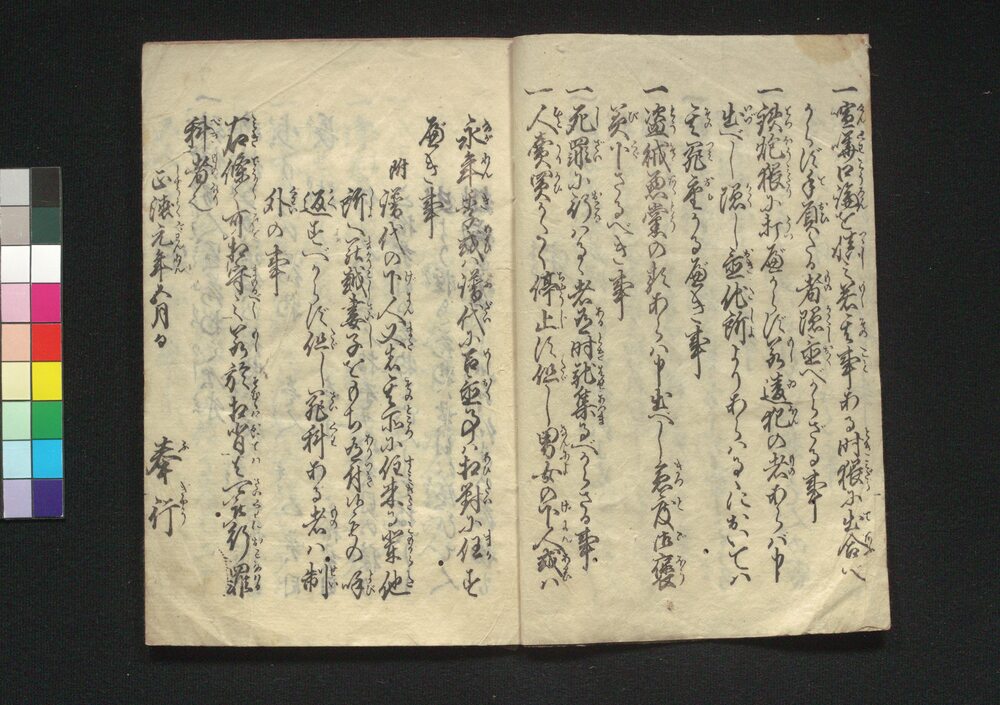 一喧嘩口論を慎ミ若其事ある時猥に出合べ
からず手負たる者隠置べからざる事
一鉄炮猥に打べからず若違犯の者あらバ申
出べし隠し置他所よりあらハるゝにおいてハ
其罪重かるべき事
一盗賊悪黨の類あらハ申出べし急度御褒
美下さるべき事
一死罪に行ハるゝ者有時馳集るべからざる事
一人賣買かたく停止す但し男女の下人或ハ
永年季或ハ譜代に召置事ハ相對に任す
べき事
附 譜代の下人又は其所に往来る輩他
所へ罷越妻子をもち有付候もの呼
返すべからず但し罪科ある者ハ制
外の事
右條々可相守之若於相背は可被行罪
科者也
正徳元年五月日 奉行